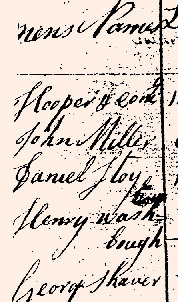 mens Names
Hooper & Comy
John Miller
Daniel Hoy
Henry Wash-
bough
George Shaver